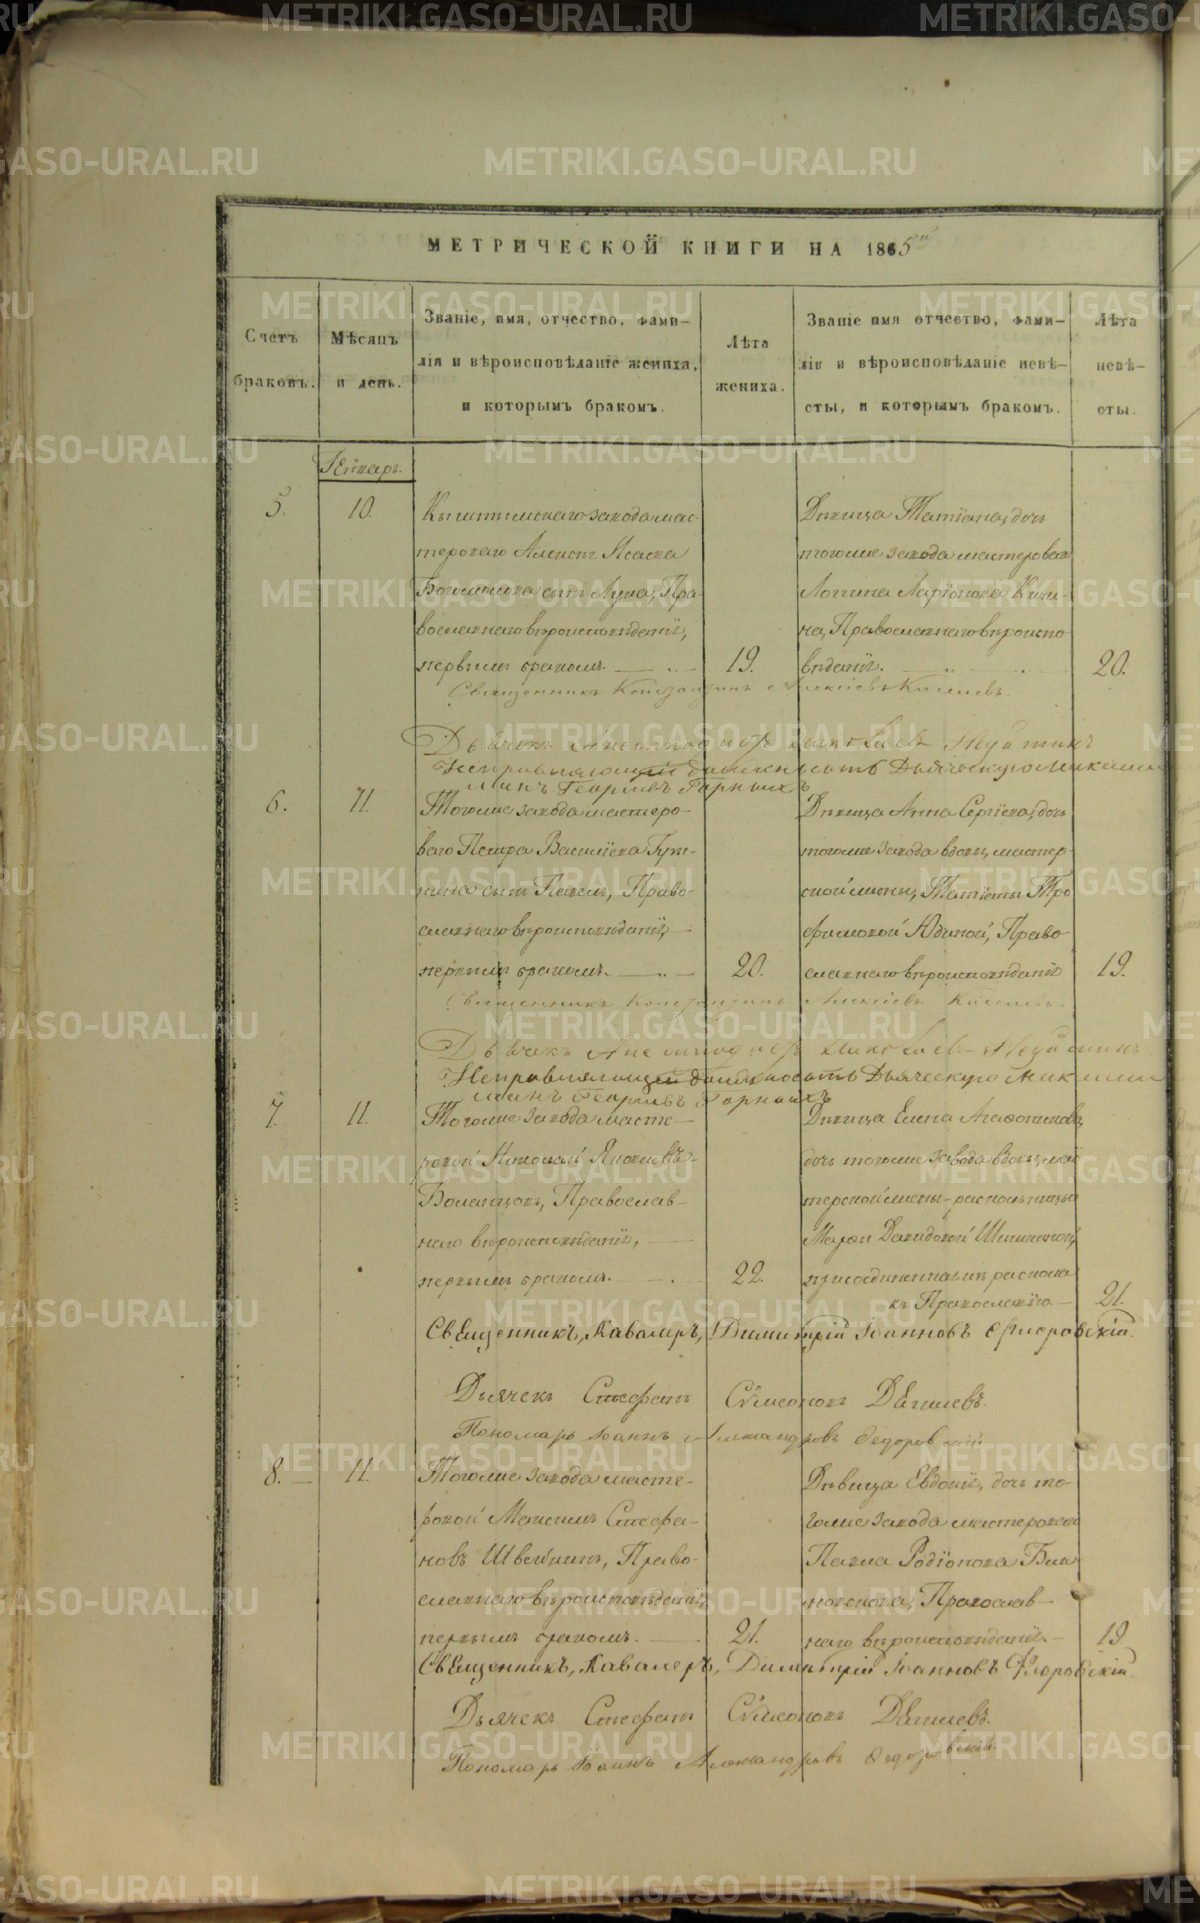 МЕТРИЧЕСКОЙ КНИГИ НА 1865й
Счетъ браковъ.
Мѣсяцъ и день.
Званіе, имя, отчество, фами-
лія и вѣроисповѣданіе жениха,
и которымъ бракомъ.
Лѣта
жениха.
Званіе имя отчество, фами-
лія и вѣроисповѣданіе невѣ-
сты, и которымъ бракомъ.
Лѣта
невѣ-
сты.
Генварь.
5.
10.
Кыштымскаго завода мас-
тероваго
сынъ Лука, Пра-
вославнаго вѣроисповѣданія,
первымъ бракомъ.
19.
Дѣвица Татіана, дочь
тогоже завода мастероваго
Логина Ларіонова
на, Православнаго вѣроиспо
вѣданія.
20.
Священникъ Константинъ Алексіевъ
Дьячекъ
Исправляющій должность Дьяческую
Георгіевъ Горныхъ
6.
11.
Тогоже завода мастеро-
ваго Петра Василіева
сынъ Павелъ, Право-
славнаго вѣроисповѣданія,
первымъ бракомъ.
20.
Дѣвица Анна Сергіева, дочь
тогоже завода вдовы, мастер-
ской жены, Татіаны Тро
фимовой Юдиной, Право
славнаго вѣроисповѣданія
19.
Священникъ Константинъ Алексіевъ
Дьячекъ
Исправляющій должность Дьяческую
Георгіевъ Горныхъ
7.
11.
Тогоже завода масте-
ровой Николай Яковлевъ
Православ-
наго вѣроисповѣданія,
первымъ бракомъ.
22.
Дѣвица Елена Агафоникова,
дочь тогоже завода вдовы, мас
терской жены - раскольницы
Марѳы Давидовой
присоединенная изъ раскола
къ Православію.
21.
Священникъ, Кавалеръ, Димитрій Іоанновъ Флоровскій.
Дьячекъ Стефанъ Сѵмеоновъ
Пономарь Іоаннъ Александровъ Федоровскій
8.
11.
Тогоже завода масте-
ровой Максимъ Стефа-
новъ Швейкинъ, Право-
славнаго вѣроисповѣданія,
первымъ бракомъ.
21.
Дѣвица Евдокія, дочь то-
гоже завода мастероваго
Павла Родіонова
Православ-
наго вѣроисповѣданія.
19
Священникъ, Кавалеръ, Димитрій Іоанновъ Флоровскій.
Дьячекъ Стефанъ Сѵмеоновъ
Пономарь Іоаннъ Александровъ Федоровскій.
METRIKI.GASO-URAL.RU